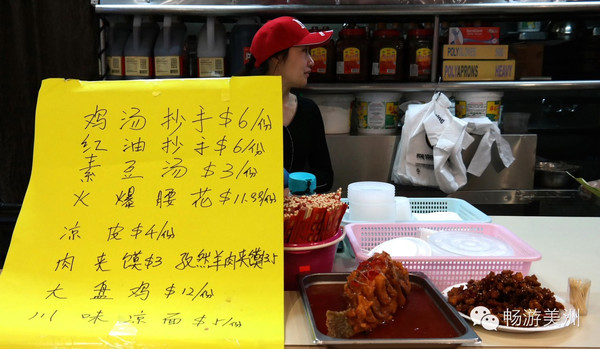 鸡汤抄手$6/份
红油抄手$6/份
素豆汤$3/份
火爆腰花$11.99/份
凉皮$4/份
肉夹馍$3 孜然羊肉夹馍3.5
大盘鸡$12/份
川味凉面$5/份
POLY-GLOVES
POLYAPRONS HEAVY
畅游美洲